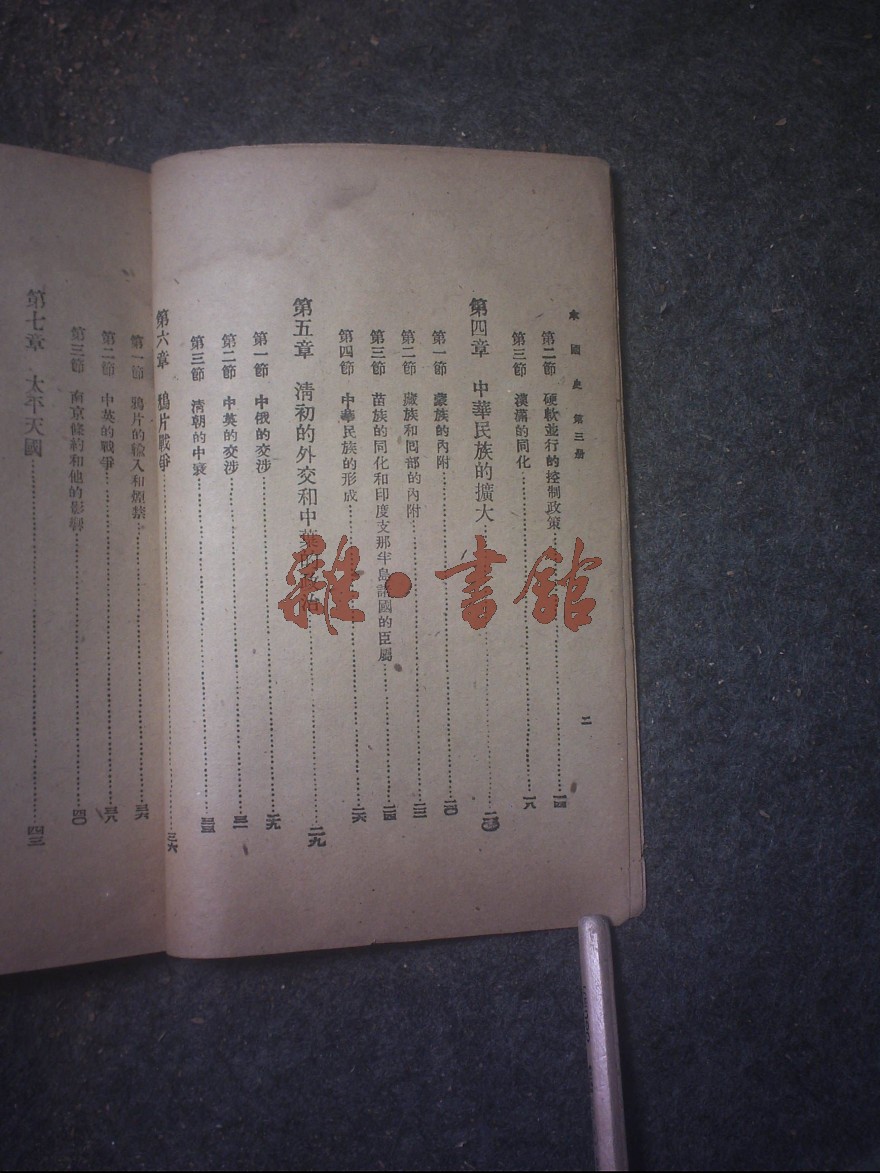 本國史 第三册
二
第二節 硬軟並行的控制政策 一四
第三節 漢滿的同化 一八
第四章 中華民族的擴大 二〇
第一節 蒙族的內附 二〇
第二節 藏族和回部的內附 二二
第三節 苗族的同化和印度支那半島諸國的臣屬 二四
第四節 中華民族的形成 二六
第五章 淸初的外交和中葉的政治 二九
第一節 中俄的交涉 二九
第二節 中英的交涉 三一
第三節 淸朝的中衰 三三
第六章 鴉片戰爭 三六
第一節 鴉片的輸入和煙禁 三六
第二節 中英的戰爭 三八
第三節 南京條約和他的影響 四〇
第七章 太平天國 四三
雜·書館